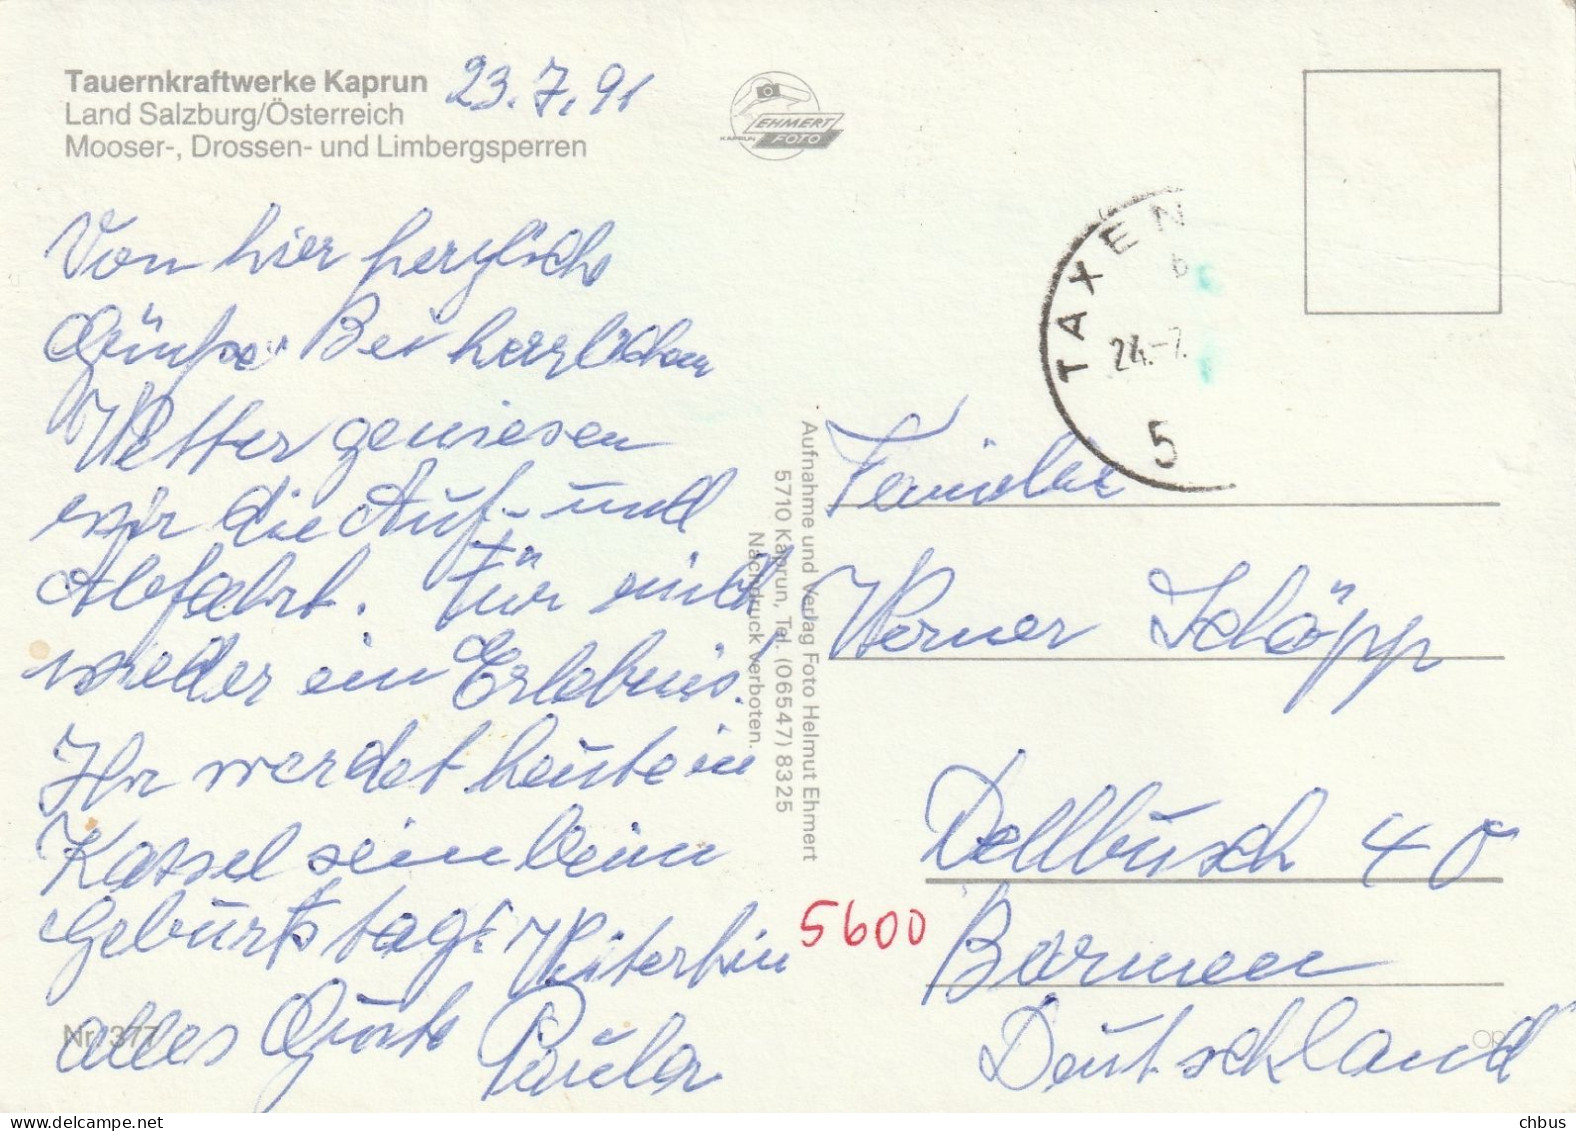 Tauernkraftwerke Kaprun
23.7.91
Land Salzburg/Österreich
Mooser-, Drossen- und Limbergsperren
EHMERT
KAPRUN FOTO
Von hier herzliche
Grüße. Bei herrlichem
Wetter geniesen
wir die Auf- und
Abfahrt. Für mich
wieder ein Erlebnis.
Ihr werdet heute in
Kassel sein beim
Geburtstag. Weiterhin
alles Gute Paula
Nr. 377
Aufnahme und Verlag Foto Helmut Ehmert
5710 Kaprun, Tel. (06547) 8325
Nachdruck verboten.
TAXEN
b
24.-7.
5
Familie
Werner Schöpp
Dellbusch 40
5600 Barmen
Deutschland
chbus